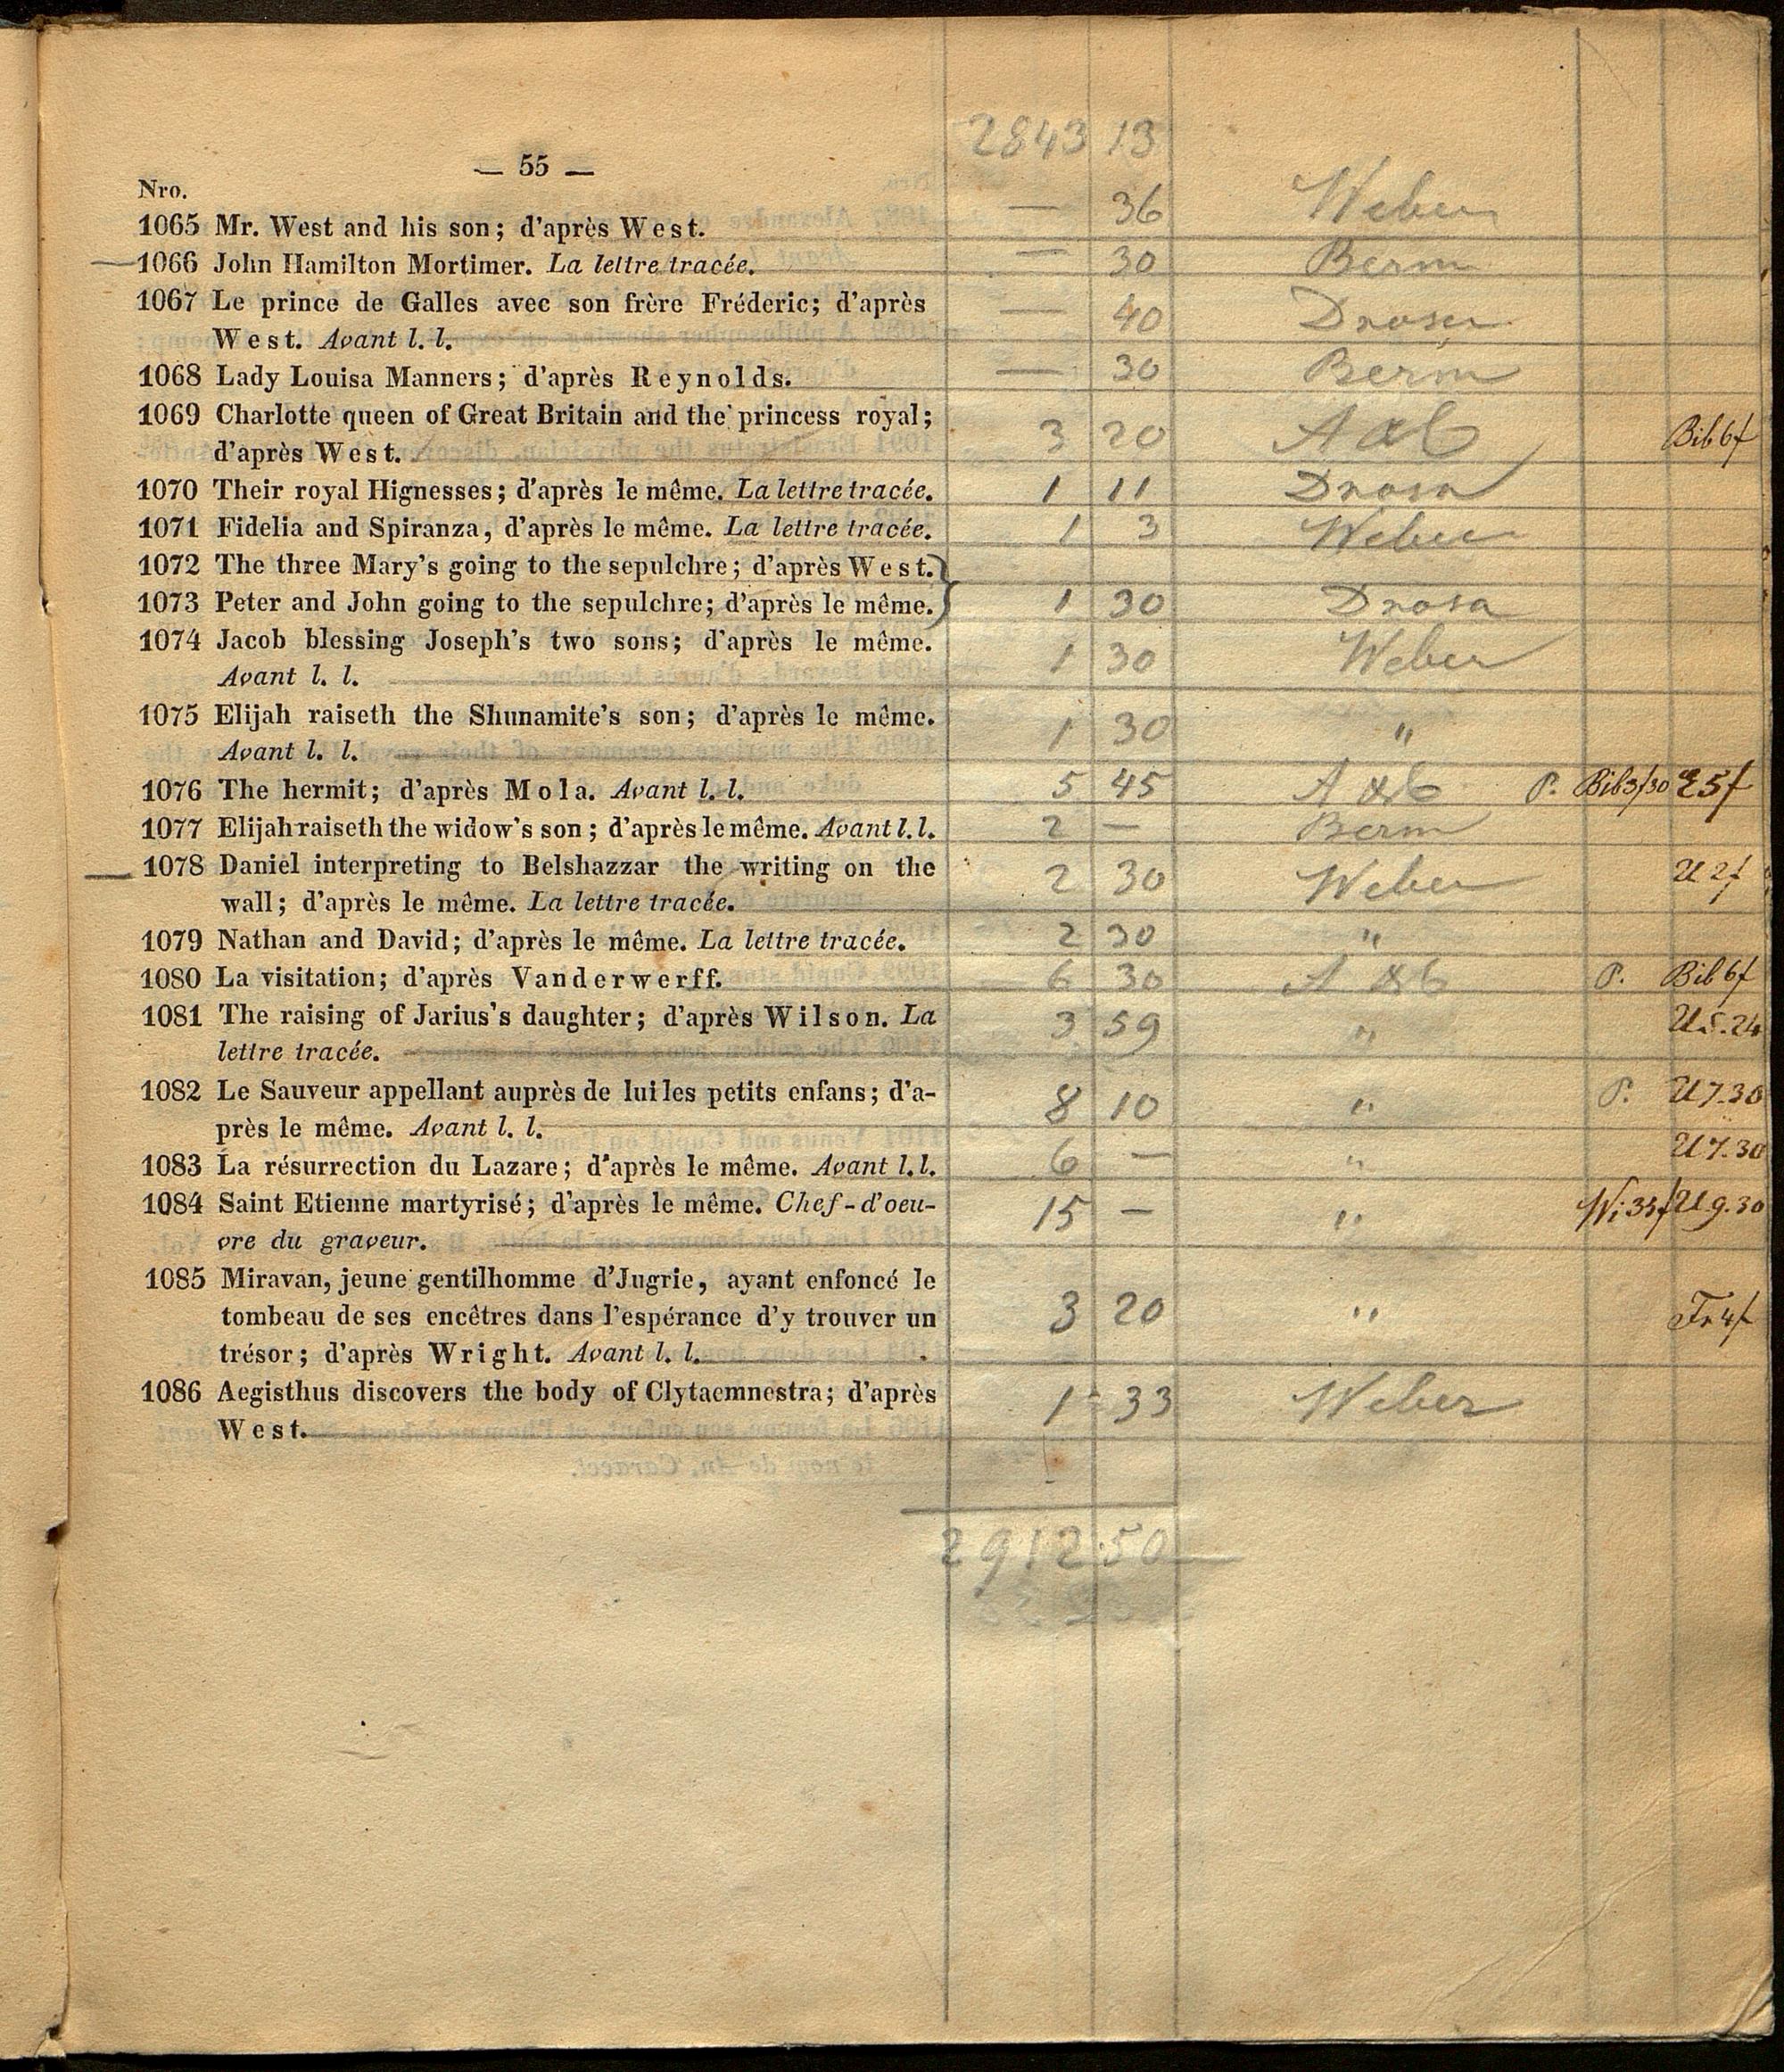 2843 13
— 55 —
Nro.
1065 Mr. West and his son; d'après West. — 36 Weber
1066 John Hamilton Mortimer. La lettre tracée. — 30 Berm
1067 Le prince de Galles avec son frère Fréderic; d'après
West. Avant l. l. — 40
1068 Lady Louisa Manners; d'après Reynolds. — 30 Berm
1069 Charlotte queen of Great Britain and the princess royal;
d'après West. 3 20 Bib 6f
1070 Their royal Hignesses; d'après le même. La lettre tracée. 1 11
1071 Fidelia and Spiranza, d'après le même. La lettre tracée. 1 3 Weber
1072 The three Mary's going to the sepulchre; d'après West.
1073 Peter and John going to the sepulchre; d'après le même. 1 30
1074 Jacob blessing Joseph's two sons; d'après le même.
Avant l. l. 1 30 Weber
1075 Elijah raiseth the Shunamite's son; d'après le même.
Avant l. l. 1 30 "
1076 The hermit; d'après Mola. Avant l. l. 5 45 P. Bib 3/30 5f
1077 Elijah raiseth the widow's son; d'après le même. Avant l. l. 2 — Berm
1078 Daniel interpreting to Belshazzar the writing on the
wall; d'après le même. La lettre tracée. 2 30 Weber U 2f
1079 Nathan and David; d'après le même. La lettre tracée. 2 30 "
1080 La visitation; d'après Vanderwerff. 6 30 P. Bib 6f
1081 The raising of Jarius's daughter; d'après Wilson. La
lettre tracée. 3 59 " U 5.24
1082 Le Sauveur appellant auprès de lui les petits enfans; d'a-
près le même. Avant l. l. 8 10 " P. U 7.30
1083 La résurrection du Lazare; d'après le même. Avant l. l. 6 — " U 7.30
1084 Saint Etienne martyrisé; d'après le même. Chef-d'oeu-
vre du graveur. 15 — " U 9.30
1085 Miravan, jeune gentilhomme d'Jugrie, ayant enfoncé le
tombeau de ses encêtres dans l'espérance d'y trouver un
trésor; d'après Wright. Avant l. l. 3 20 " Fr 4f
1086 Aegisthus discovers the body of Clytaemnestra; d'après
West. 1 33 Weber
2912.50